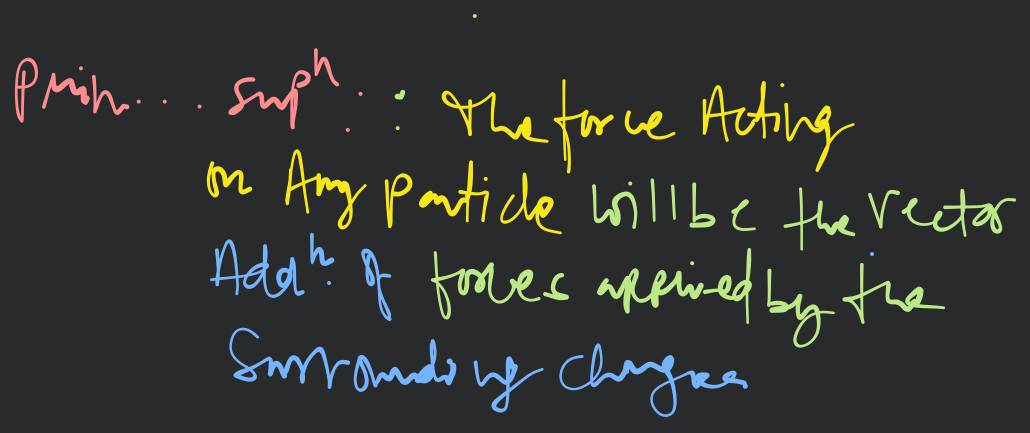 Prin... Supⁿ. : The force Acting
on Any particle will be the vector
Addⁿ. of forces applied by the
Surrounding charges